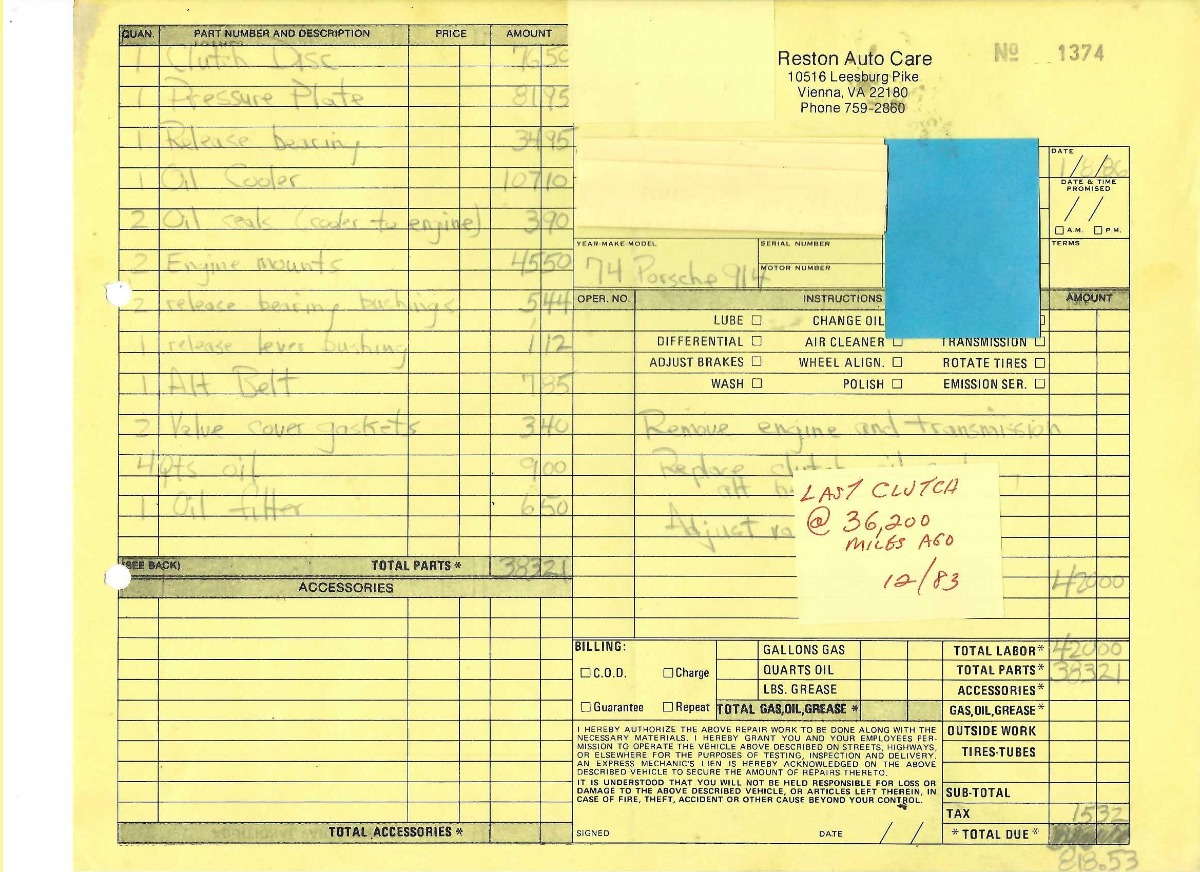 QUAN. PART NUMBER AND DESCRIPTION PRICE AMOUNT
1 Clutch Disc 76 50
1 Pressure Plate 81 95
1 Release bearing 34 95
1 Oil Cooler 107 10
2 Oil seals (cooler to engine) 3 90
2 Engine mounts 45 50
2 release bearing bushings 5 44
1 release lever bushing 1 12
1 Alt Belt 7 85
2 Valve cover gaskets 3 40
4 qts oil 9 00
1 Oil filter 6 50
(SEE BACK) TOTAL PARTS * 383 21
ACCESSORIES
TOTAL ACCESSORIES *
Reston Auto Care
10516 Leesburg Pike
Vienna, VA 22180
Phone 759-2860
Nº 1374
DATE
1/8/86
DATE & TIME
PROMISED
/ /
A.M. P.M.
YEAR-MAKE-MODEL SERIAL NUMBER TERMS
MOTOR NUMBER
74 Porsche 914
OPER. NO. INSTRUCTIONS AMOUNT
LUBE CHANGE OIL
DIFFERENTIAL AIR CLEANER TRANSMISSION
ADJUST BRAKES WHEEL ALIGN. ROTATE TIRES
WASH POLISH EMISSION SER.
Remove engine and transmission
Replace clutch, oil
alt
Adjust
LAST CLUTCH
@ 36,200
MILES AGO
12/83
420 00
BILLING:
C.O.D. Charge
Guarantee Repeat
GALLONS GAS
QUARTS OIL
LBS. GREASE
TOTAL GAS,OIL,GREASE *
TOTAL LABOR* 420 00
TOTAL PARTS* 383 21
ACCESSORIES*
GAS,OIL,GREASE*
OUTSIDE WORK
TIRES-TUBES
SUB-TOTAL
TAX 15 32
* TOTAL DUE*
818.53
I HEREBY AUTHORIZE THE ABOVE REPAIR WORK TO BE DONE ALONG WITH THE
NECESSARY MATERIALS. I HEREBY GRANT YOU AND YOUR EMPLOYEES PER-
MISSION TO OPERATE THE VEHICLE ABOVE DESCRIBED ON STREETS, HIGHWAYS,
OR ELSEWHERE FOR THE PURPOSES OF TESTING, INSPECTION AND DELIVERY.
AN EXPRESS MECHANIC'S LIEN IS HEREBY ACKNOWLEDGED ON THE ABOVE
DESCRIBED VEHICLE TO SECURE THE AMOUNT OF REPAIRS THERETO.
IT IS UNDERSTOOD THAT YOU WILL NOT BE HELD RESPONSIBLE FOR LOSS OR
DAMAGE TO THE ABOVE DESCRIBED VEHICLE, OR ARTICLES LEFT THEREIN, IN
CASE OF FIRE, THEFT, ACCIDENT OR OTHER CAUSE BEYOND YOUR CONTROL.
SIGNED DATE / /